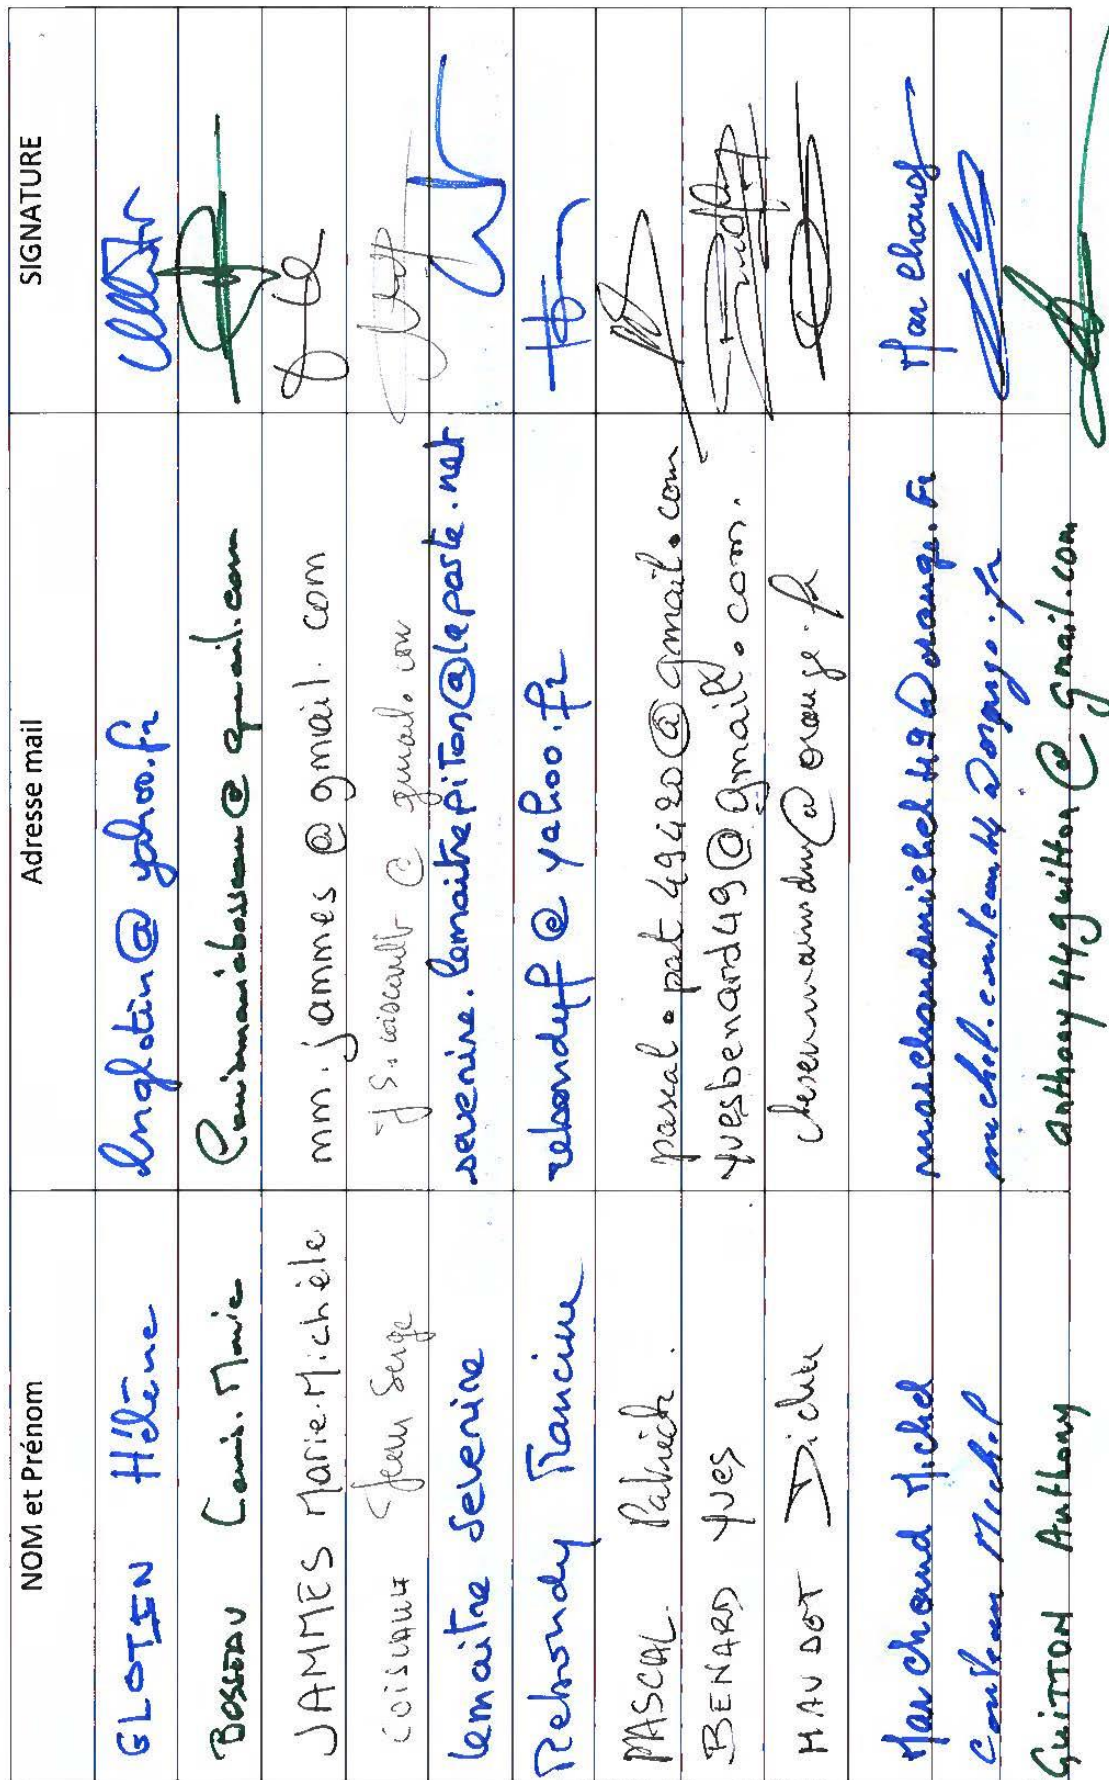 NOM et Prénom Adresse mail SIGNATURE
GLOTIN Hélène lnglotin@yahoo.fr
BOSSEAU Louis.Marie louismariebosseau@gmail.com
JAMMES Marie.Michèle mm.jammes@gmail.com
COISCAULT Jean Serge js.coiscault@gmail.com
lemaitre Severine severine.lemaitrepiton@laposte.net
Rebondy Francine rebondyf@yahoo.fr
PASCAL Patrick pascal.pat49420@gmail.com
BENARD Yves yvesbenard49@gmail.com.
HAUDOT @orange.fr
Marchand Michel marchandmichel49@orange.fr Marchand
Michel @orange.fr
GUITTON Anthony anthony44guitton@gmail.com